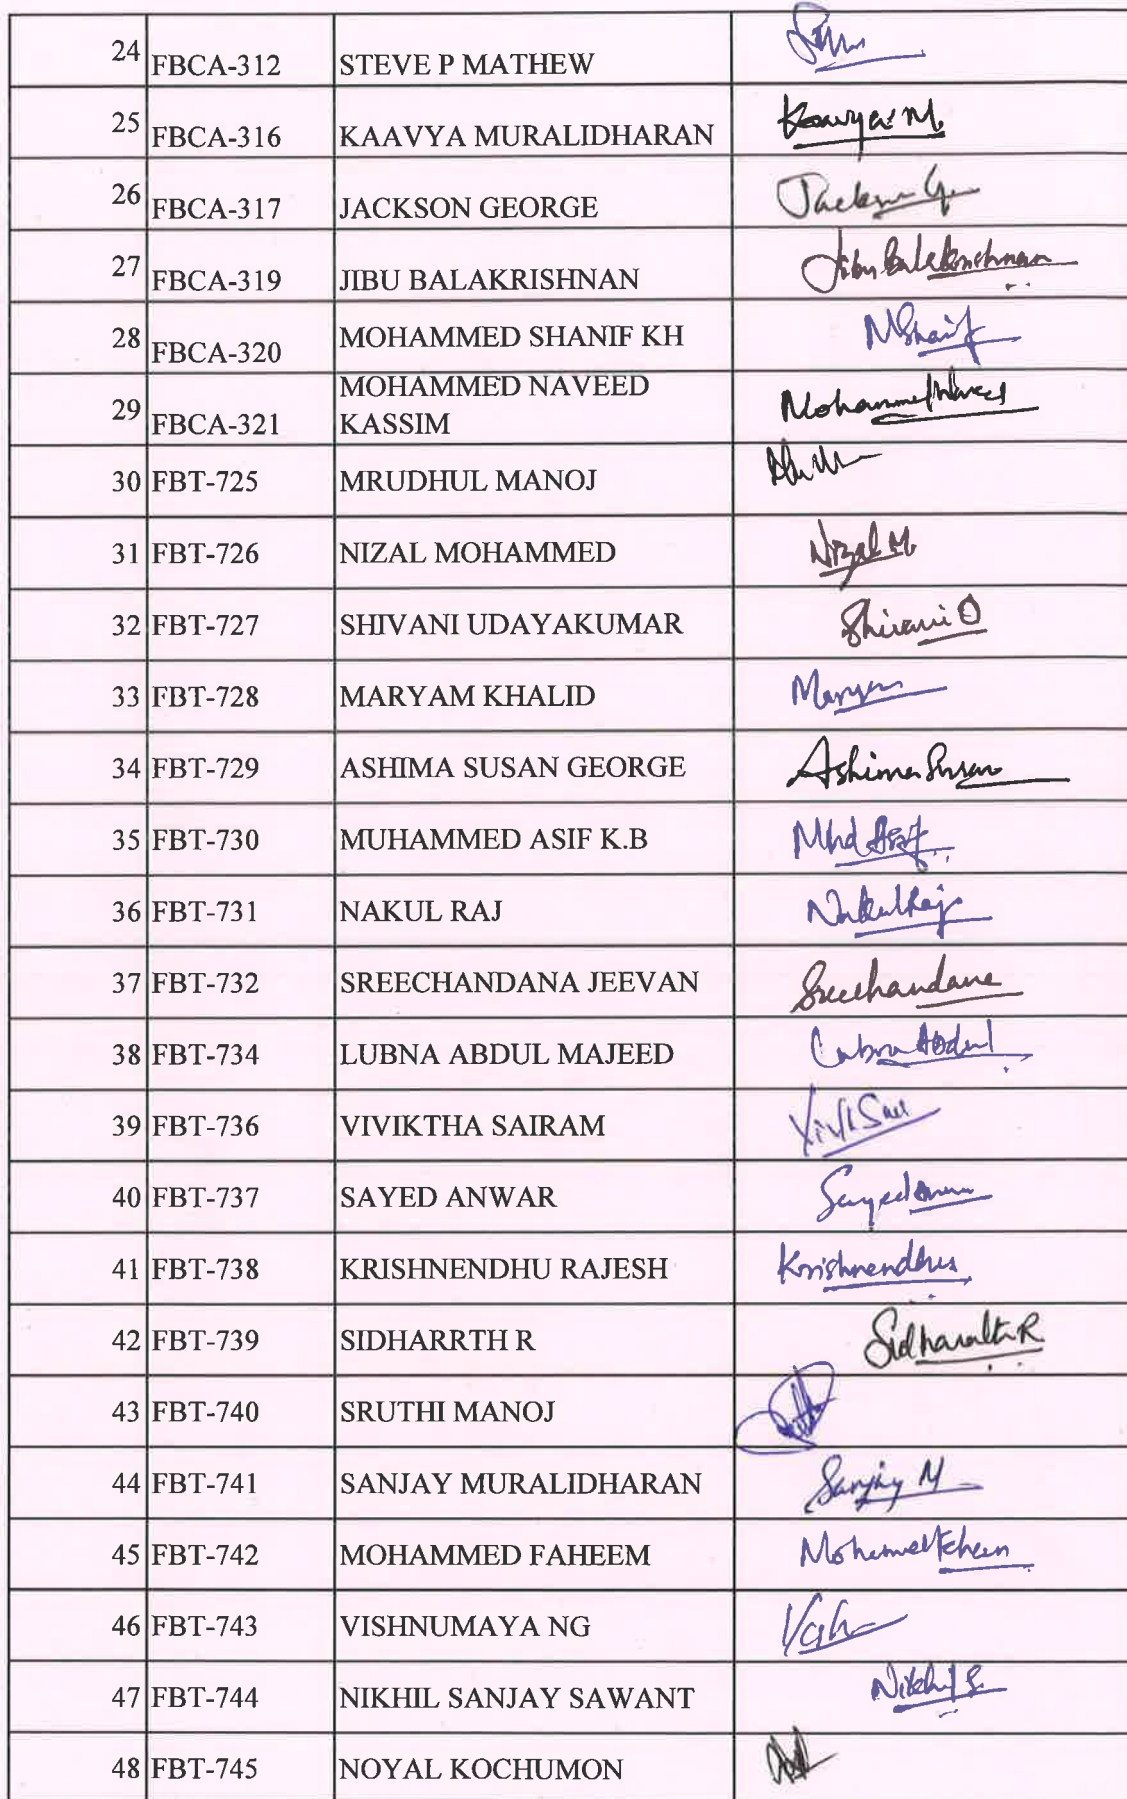 24 FBCA-312 STEVE P MATHEW
25 FBCA-316 KAAVYA MURALIDHARAN Kaavya M.
26 FBCA-317 JACKSON GEORGE Jackson Ge
27 FBCA-319 JIBU BALAKRISHNAN Jibu Balakrishnan
28 FBCA-320 MOHAMMED SHANIF KH MShanif
MOHAMMED NAVEED
29 FBCA-321 KASSIM Mohammed Naveed
30 FBT-725 MRUDHUL MANOJ
31 FBT-726 NIZAL MOHAMMED Nizal M.
32 FBT-727 SHIVANI UDAYAKUMAR Shivani U
33 FBT-728 MARYAM KHALID Maryam
34 FBT-729 ASHIMA SUSAN GEORGE Ashima Susan
35 FBT-730 MUHAMMED ASIF K.B Mhd Asif
36 FBT-731 NAKUL RAJ Nakul Raj
37 FBT-732 SREECHANDANA JEEVAN Sreechandana
38 FBT-734 LUBNA ABDUL MAJEED Lubna Abdul
39 FBT-736 VIVIKTHA SAIRAM
40 FBT-737 SAYED ANWAR Sayed Anwar
41 FBT-738 KRISHNENDHU RAJESH Krishnendhu
42 FBT-739 SIDHARRTH R Sidharrth R
43 FBT-740 SRUTHI MANOJ
44 FBT-741 SANJAY MURALIDHARAN Sanjay M
45 FBT-742 MOHAMMED FAHEEM Mohammed Faheem
46 FBT-743 VISHNUMAYA NG
47 FBT-744 NIKHIL SANJAY SAWANT Nikhil S.
48 FBT-745 NOYAL KOCHUMON